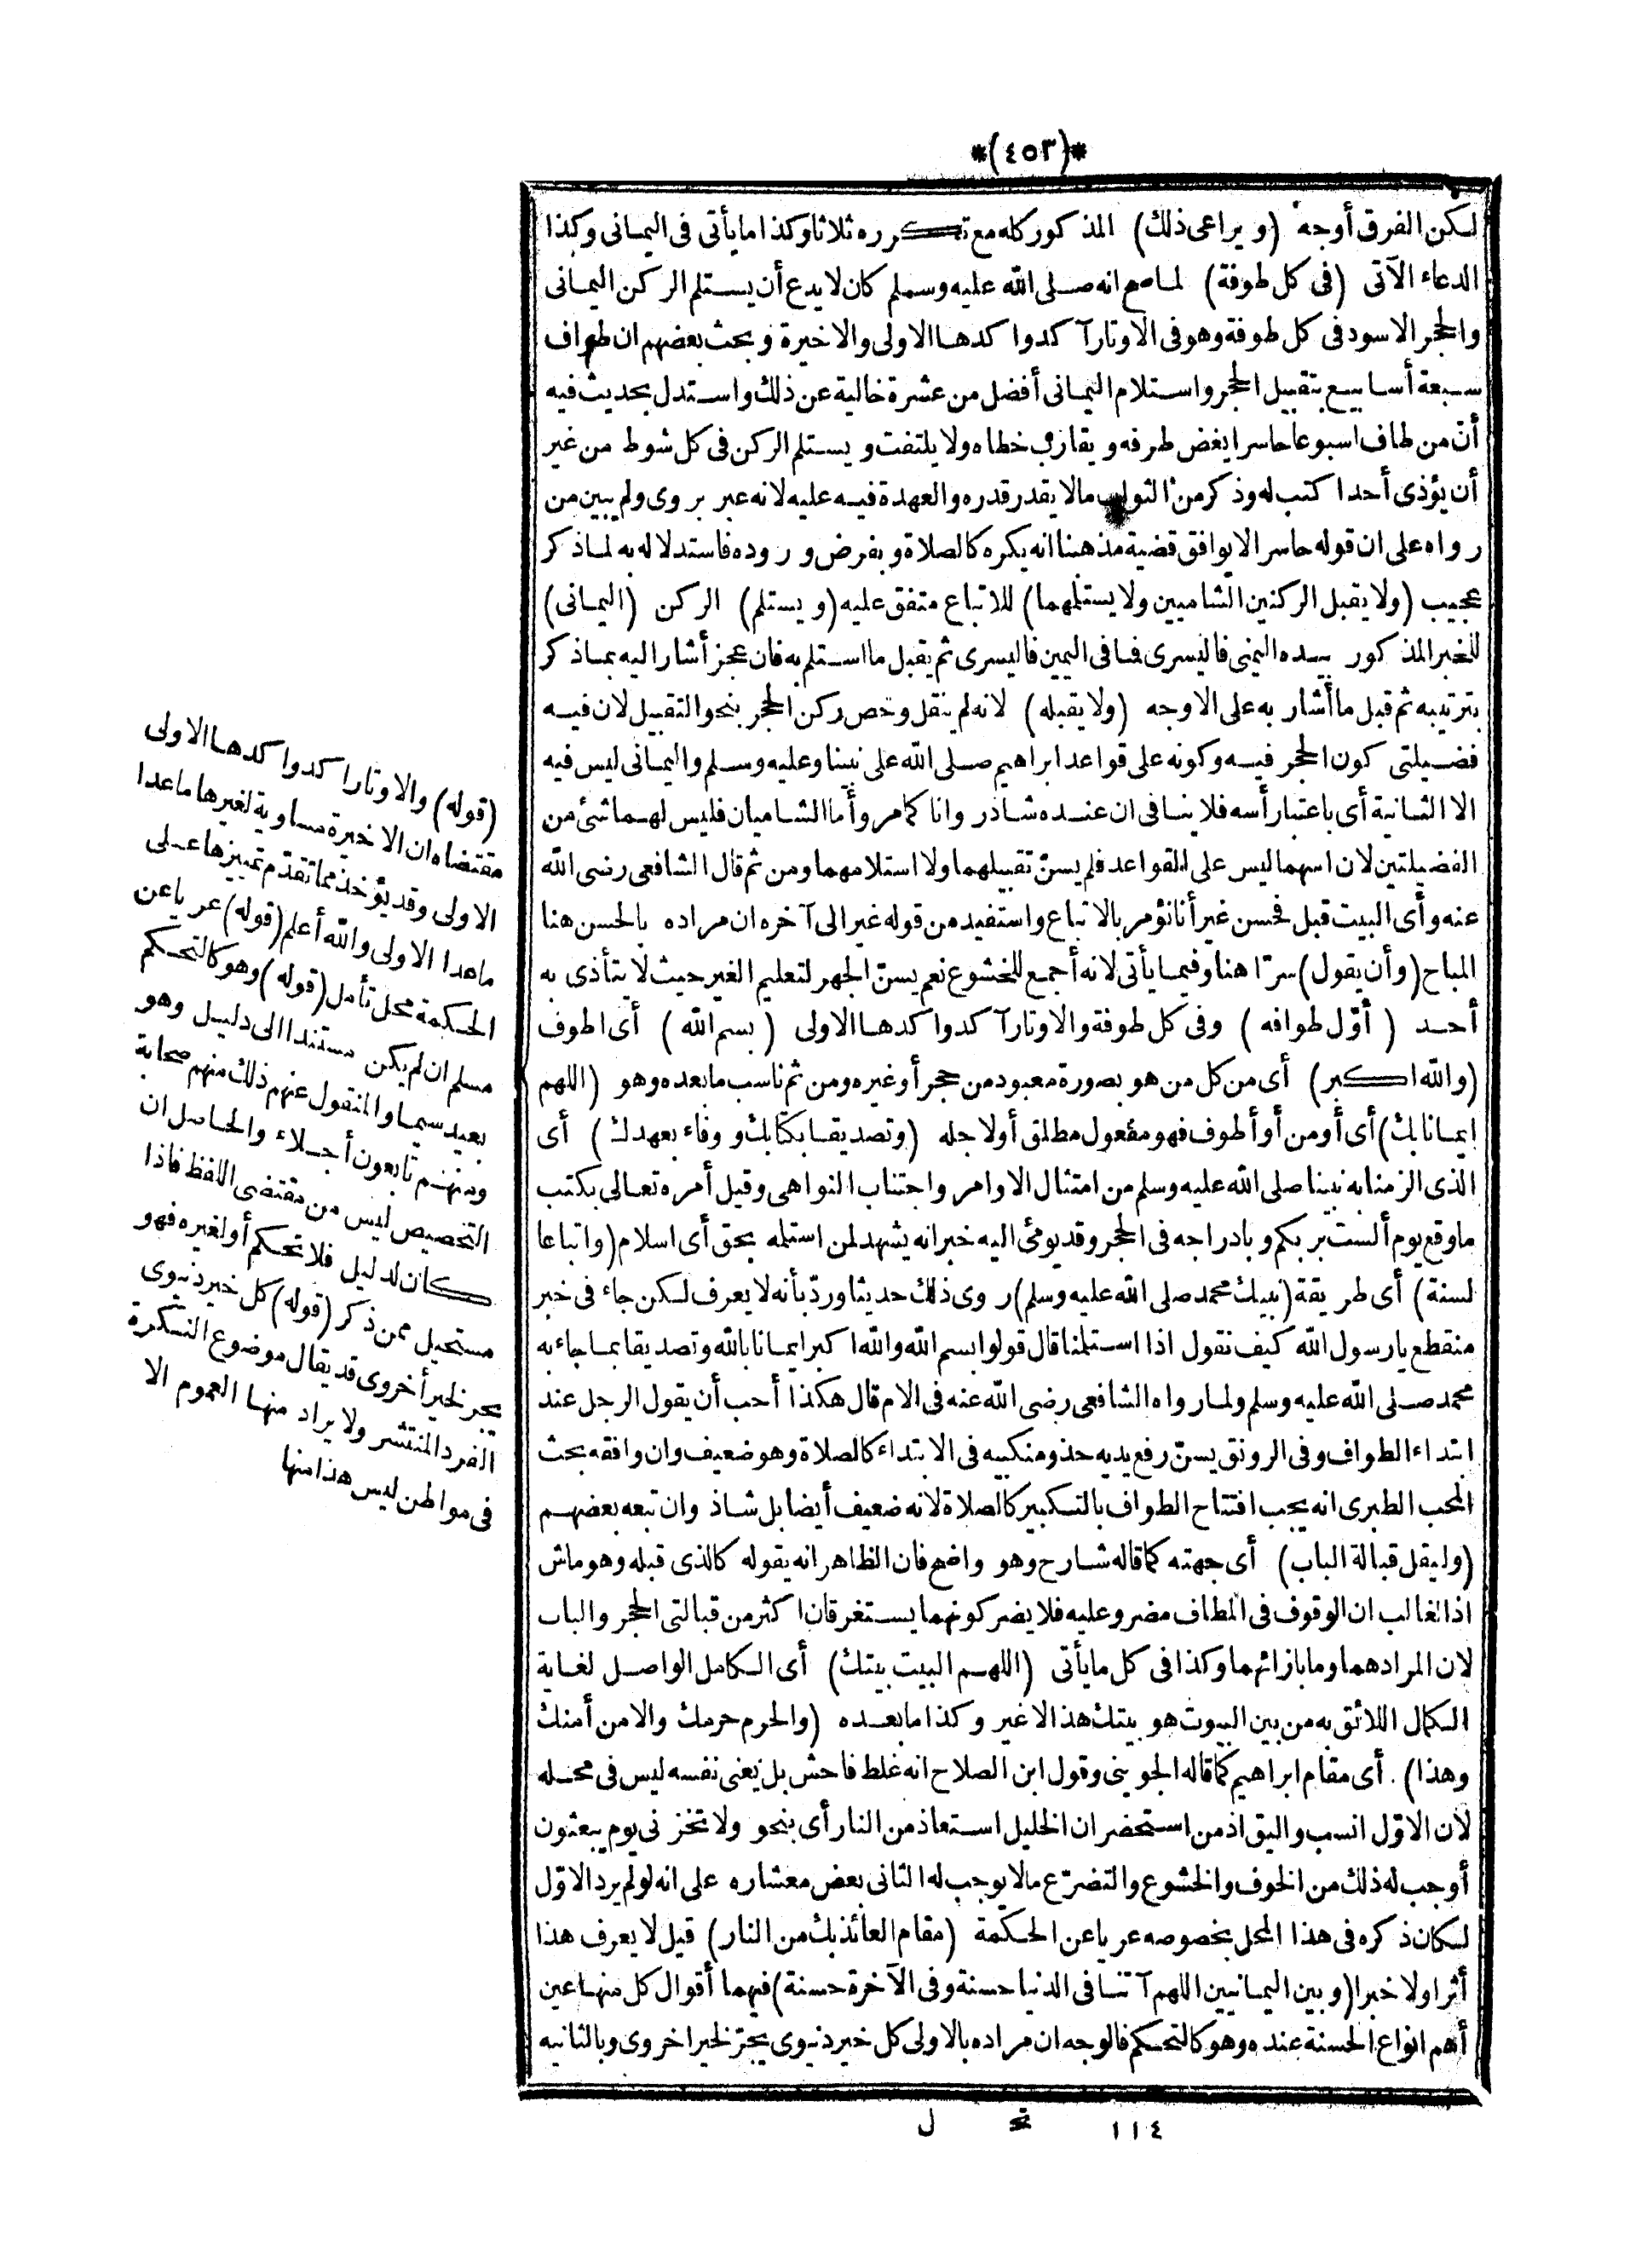 *(٤٥٣)*
لكن الفرق أوجه (ويراعى ذلك) المذكور كله مع تكرره ثلاثا وكذا ما يأتى فى اليمانى وكذا
الدعاء الآتى (فى كل طوفة) لما صح انه صلى الله عليه وسلم كان لا يدع أن يستلم الركن اليمانى
والحجر الاسود فى كل طوفة وهو فى الاوتار آكد وا كدها الاولى والاخيرة وبحث بعضهم ان طواف
سبعة أسابيع بتقبيل الحجر واستلام اليمانى أفضل من عشرة خالية عن ذلك واستدل بحديث فيه
أنّ من طاف اسبوعا حاسرا يغض طرفه ويقارب خطاه ولا يلتفت ويستلم الركن فى كل شوط من غير
أن يؤذى أحدا كتب له وذكر من الثواب ما لا يقدر قدره والعهدة فيه عليه لانه عبر بروى ولم يبين من
رواه على ان قوله حاسرا لا يوافق قضية مذهبنا انه يكره كالصلاة وبفرض وروده فاستدلاله به لما ذكر
عجيب (ولا يقبل الركنين الشاميين ولا يستلمهما) للاتباع متفق عليه (ويستلم) الركن (اليمانى)
للخبر المذكور بيده اليمنى فاليسرى فما فى اليمين فاليسرى ثم يقبل ما استلم به فان عجز أشار اليه بما ذكر
بترتيبه ثم قبل ما أشار به على الاوجه (ولا يقبله) لانه لم ينقل وخص ركن الحجر بنحو التقبيل لان فيه
فضيلتى كون الحجر فيه وكونه على قواعد ابراهيم صلى الله على نبينا وعليه وسلم واليمانى ليس فيه
الا الثانية أى باعتبار أسه فلا ينافى ان عنده شاذروانا كما مر وأما الشاميان فليس لهما شئ من
الفضيلتين لان اسهما ليس على القواعد فلم يسنّ تقبيلهما ولا استلامهما ومن ثم قال الشافعى رضى الله
عنه وأى البيت قبل فحسن غير أنا نؤمر بالاتباع واستفيد من قوله غير الى آخره ان مراده بالحسن هنا
المباح (وأن يقول) سرّا هنا وفيما يأتى لانه أجمع للخشوع نعم يسنّ الجهر لتعليم الغير حيث لا يتأذى به
أحد (أوّل طوافه) وفى كل طوفة والاوتار آكد وا كدها الاولى (بسم الله) أى اطوف
(والله اكبر) أى من كل من هو بصورة معبود من حجر أو غيره ومن ثم ناسب ما بعده وهو (اللهم
ايمانا بك) أى أومن أو أطوف فهو مفعول مطلق أو لاجله (وتصديقا بكتابك ووفاء بعهدك) أى
الذى الزمنا به نبينا صلى الله عليه وسلم من امتثال الاوامر واجتناب النواهى وقيل أمره تعالى بكتب
ما وقع يوم ألست بربكم وبادراجه فى الحجر وقد يومئ اليه خبر انه يشهد لمن استلمه بحق أى اسلام (واتباعا
لسنة) أى طريقة (نبيك محمد صلى الله عليه وسلم) روى ذلك حديثا وردّ بأنه لا يعرف لكن جاء فى خبر
منقطع يا رسول الله كيف نقول اذا استلمنا قال قولوا بسم الله والله اكبر ايمانا بالله وتصديقا بما جاء به
محمد صلى الله عليه وسلم ولما رواه الشافعى رضى الله عنه فى الام قال هكذا أحب أن يقول الرجل عند
ابتداء الطواف وفى الرونق يسنّ رفع يديه حذو منكبيه فى الابتداء كالصلاة وهو ضعيف وان وافقه بحث
المحب الطبرى انه يجب افتتاح الطواف بالتكبير كالصلاة لانه ضعيف أيضا بل شاذ وان تبعه بعضهم
(وليقل قبالة الباب) أى جهته كما قاله شارح وهو واضح فان الظاهر انه يقوله كالذى قبله وهو ماش
اذ الغالب ان الوقوف فى المطاف مضر وعليه فلا يضر كونهما يستغرقان اكثر من قبالتى الحجر والباب
لان المراد هما وما بازائهما وكذا فى كل ما يأتى (اللهم البيت بيتك) أى الكامل الواصل لغاية
الكمال اللائق به من بين البيوت هو بيتك هذا لا غير وكذا ما بعده (والحرم حرمك والامن أمنك
وهذا) أى مقام ابراهيم كما قاله الجوينى وقول ابن الصلاح انه غلط فاحش بل يعنى نفسه ليس فى محله
لان الاوّل انسب واليق اذ من استحضر ان الخليل استعاذ من النار أى بنحو ولا تخزنى يوم يبعثون
أوجب له ذلك من الخوف والخشوع والتضرّع ما لا يوجب له الثانى بعض معشاره على انه لو لم يرد الاوّل
لكان ذكره فى هذا المحل بخصوصه عريا عن الحكمة (مقام العائذ بك من النار) قيل لا يعرف هذا
أثرا ولا خبرا (وبين اليمانيين اللهم آتنا فى الدنيا حسنة وفى الآخرة حسنة) فيهما أقوال كل منها عين
أهم انواع الحسنة عنده وهو كالتحكم فالوجه ان مراده بالاولى كل خير دنيوى يجرّ لخير اخروى وبالثانيه
(قوله) والاوتار اكد وا كدها الاولى
مقتضاه ان الاخيرة مساوية لغيرها ما عدا
الاولى وقد يؤخذ مما تقدّم تمييزها على
ما عدا الاولى والله أعلم (قوله) عريا عن
الحكمة محل تأمل (قوله) وهو كالتحكم
مسلم ان لم يكن مستندا الى دليل وهو
بعيد سيما والمنقول عنهم ذلك منهم صحابة
ومنهم تابعون أجلاء والحاصل ان
التخصيص ليس من مقتضى اللفظ فاذا
كان لدليل فلا تحكم أو لغيره فهو
مستحيل ممن ذكر (قوله) كل خير دنيوى
يجر لخير أخروى قد يقال موضوع النكرة
الفرد المنتشر ولا يراد منها العموم الا
فى مواطن ليس هذا منها
١١٤ تح ل